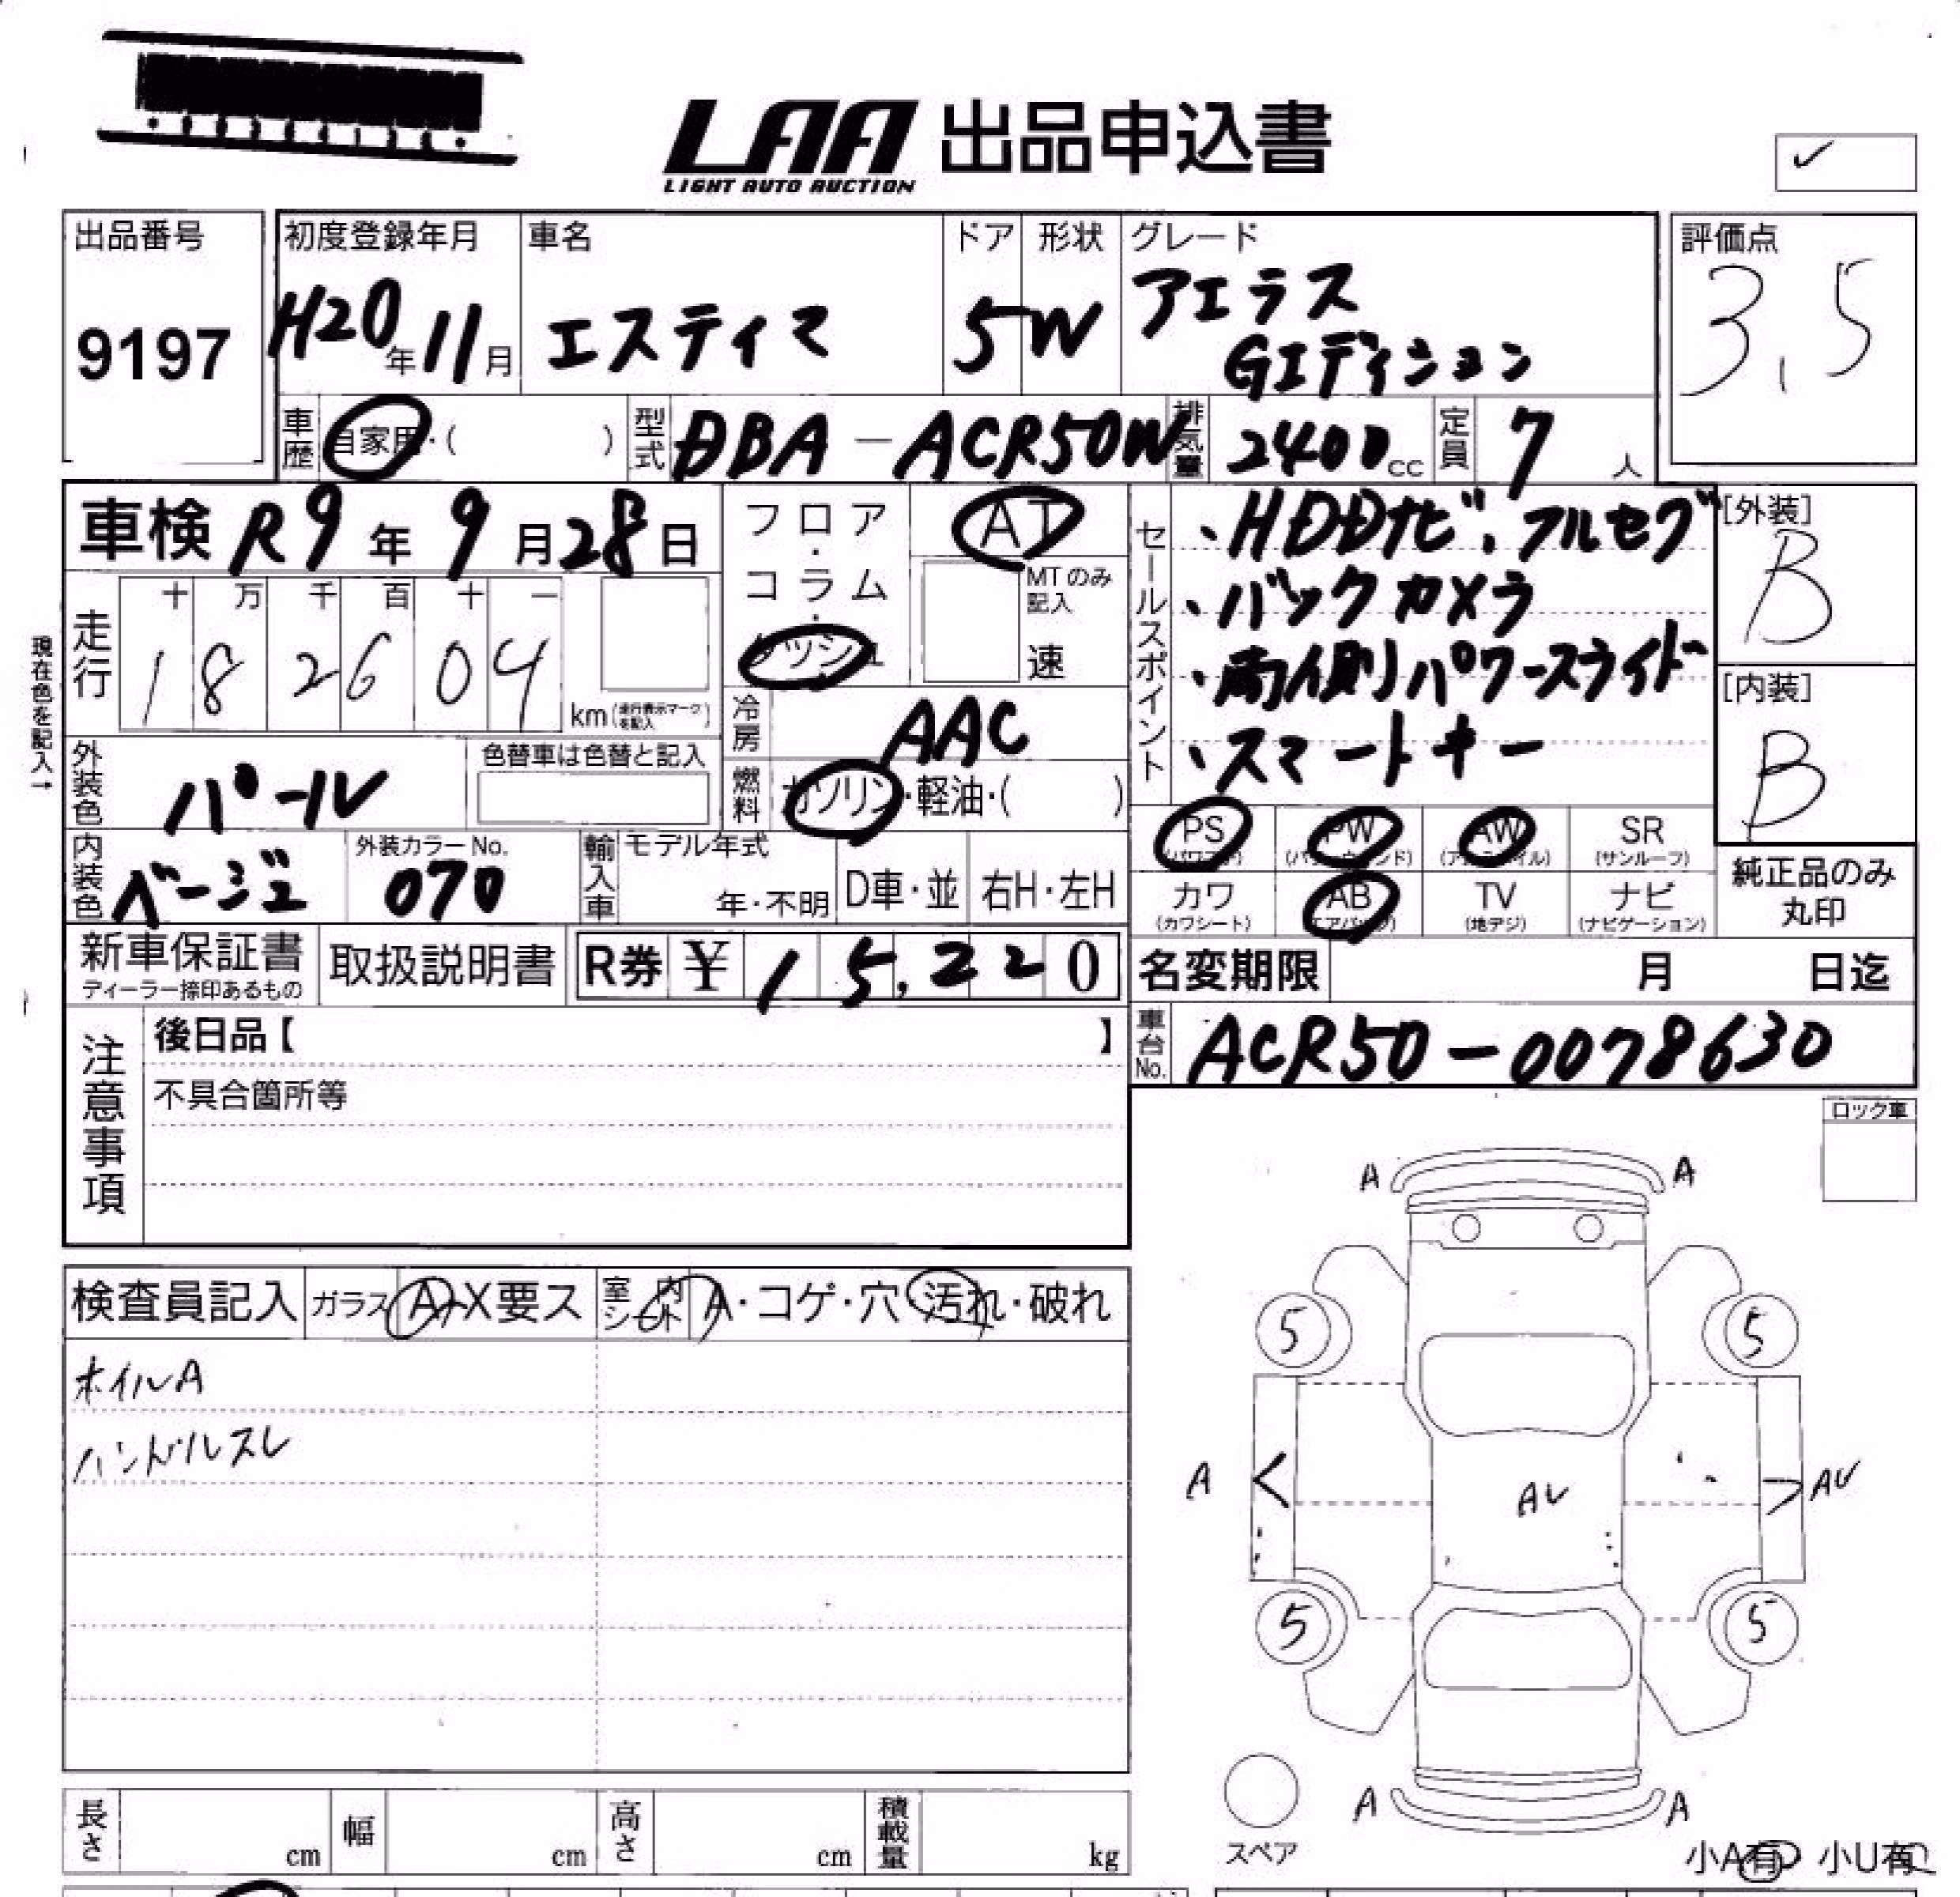 LAA 出品申込書
LIGHT AUTO AUCTION
✓
出品番号
9197
初度登録年月
H20年11月
車名
エスティマ
ドア
5
形状
W
グレード
アエラス
Gエディション
評価点
3.5
車歴 自家用・( )
型式 DBA-ACR50W
排気量 2400cc
定員 7人
車検 R9年9月28日
フロア・コラム・ダッシュ
AT
MTのみ記入
速
セールスポイント
・HDDナビ、フルセグ
・バックカメラ
・両側パワースライド
・スマートキー
[外装]
B
[内装]
B
現在色を記入→
走行
十 万 千 百 十 一
1 8 2 6 0 4
km(走行表示マークを記入)
冷房 AAC
外装色 パール
色替車は色替と記入
燃料 ガソリン・軽油・( )
内装色 ベージュ
外装カラーNo.
070
輸入車
モデル年式
年・不明
D車・並
右H・左H
PS (パワステ)
PW (パワーウィンド)
AW (アルミホイル)
SR (サンルーフ)
カワ (カワシート)
AB (エアバッグ)
TV (地デジ)
ナビ (ナビゲーション)
純正品のみ
丸印
新車保証書
ディーラー捺印あるもの
取扱説明書
R券 ¥ 15,220
名変期限 月 日迄
車台No. ACR50-0078630
注意事項
後日品【 】
不具合箇所等
ロック車
検査員記入
ガラス A・X要ス
室内シート A・コゲ・穴・汚れ・破れ
ホイルA
ハンドルスレ
A A
5 5
A AU AU
5 5
A A
スペア
小A有 小U有
長さ cm
幅 cm
高さ cm
積載量 kg